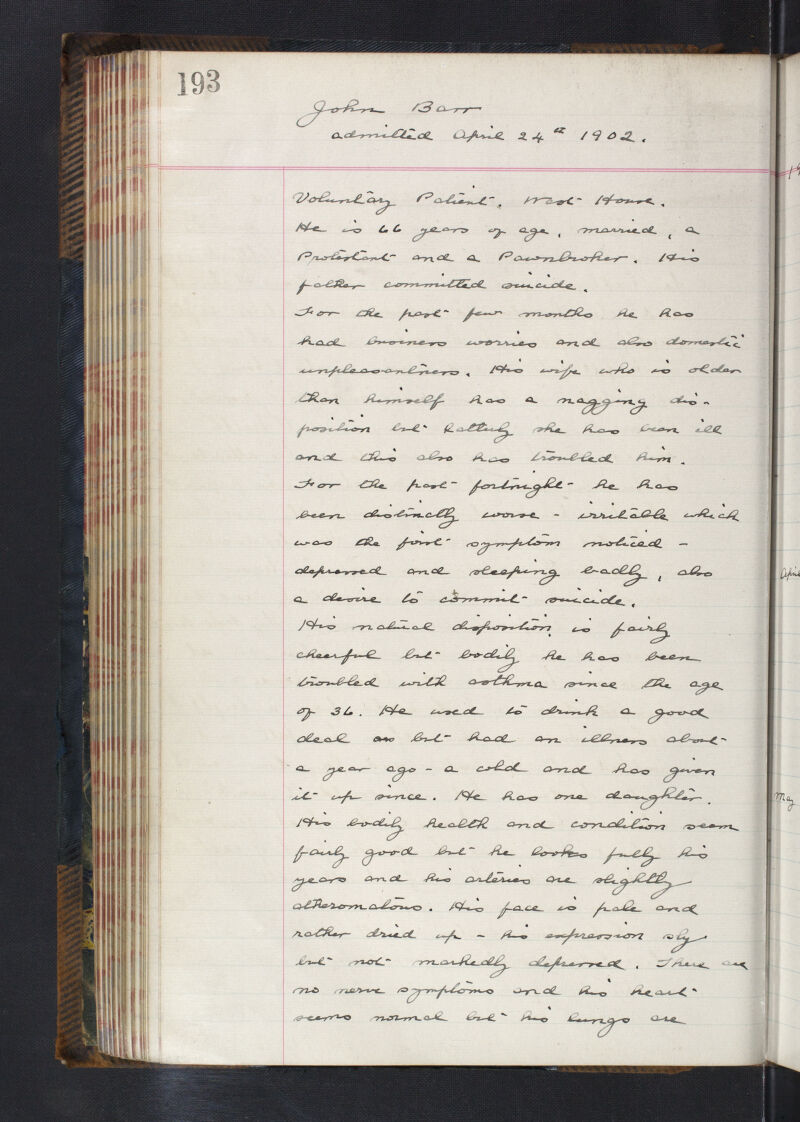 193
John Barr
admitted April 24th 1902.
Voluntary Patient, West House.
He is 66 years of age, married, a
Protestant and a Pawnbroker. His
father committed suicide.
For the past few months he has
had business worries and also domestic
unpleasantness. His wife who is older
than himself has a nagging dis-
position but latterly she has been ill
and this also has troubled him.
For the past fortnight he has
been distinctly worse - irritable which
was the first symptom noticed -
depressed and sleeping badly, also
a desire to commit suicide.
His natural disposition is fairly
cheerful but bodily he has been
troubled with asthma since the age
of 36. He used to drink a good
deal but had an illness about
a year ago - a cold and has given
it up since. He has one daughter.
His bodily health and condition seem
fairly good but he looks fully his
years and his arteries are slightly
atheromatous. His face is pale and
rather dried up - his expression sly
but not markedly depressed. There are
no nerve symptoms and his heart
seems normal but his lungs are
April
May